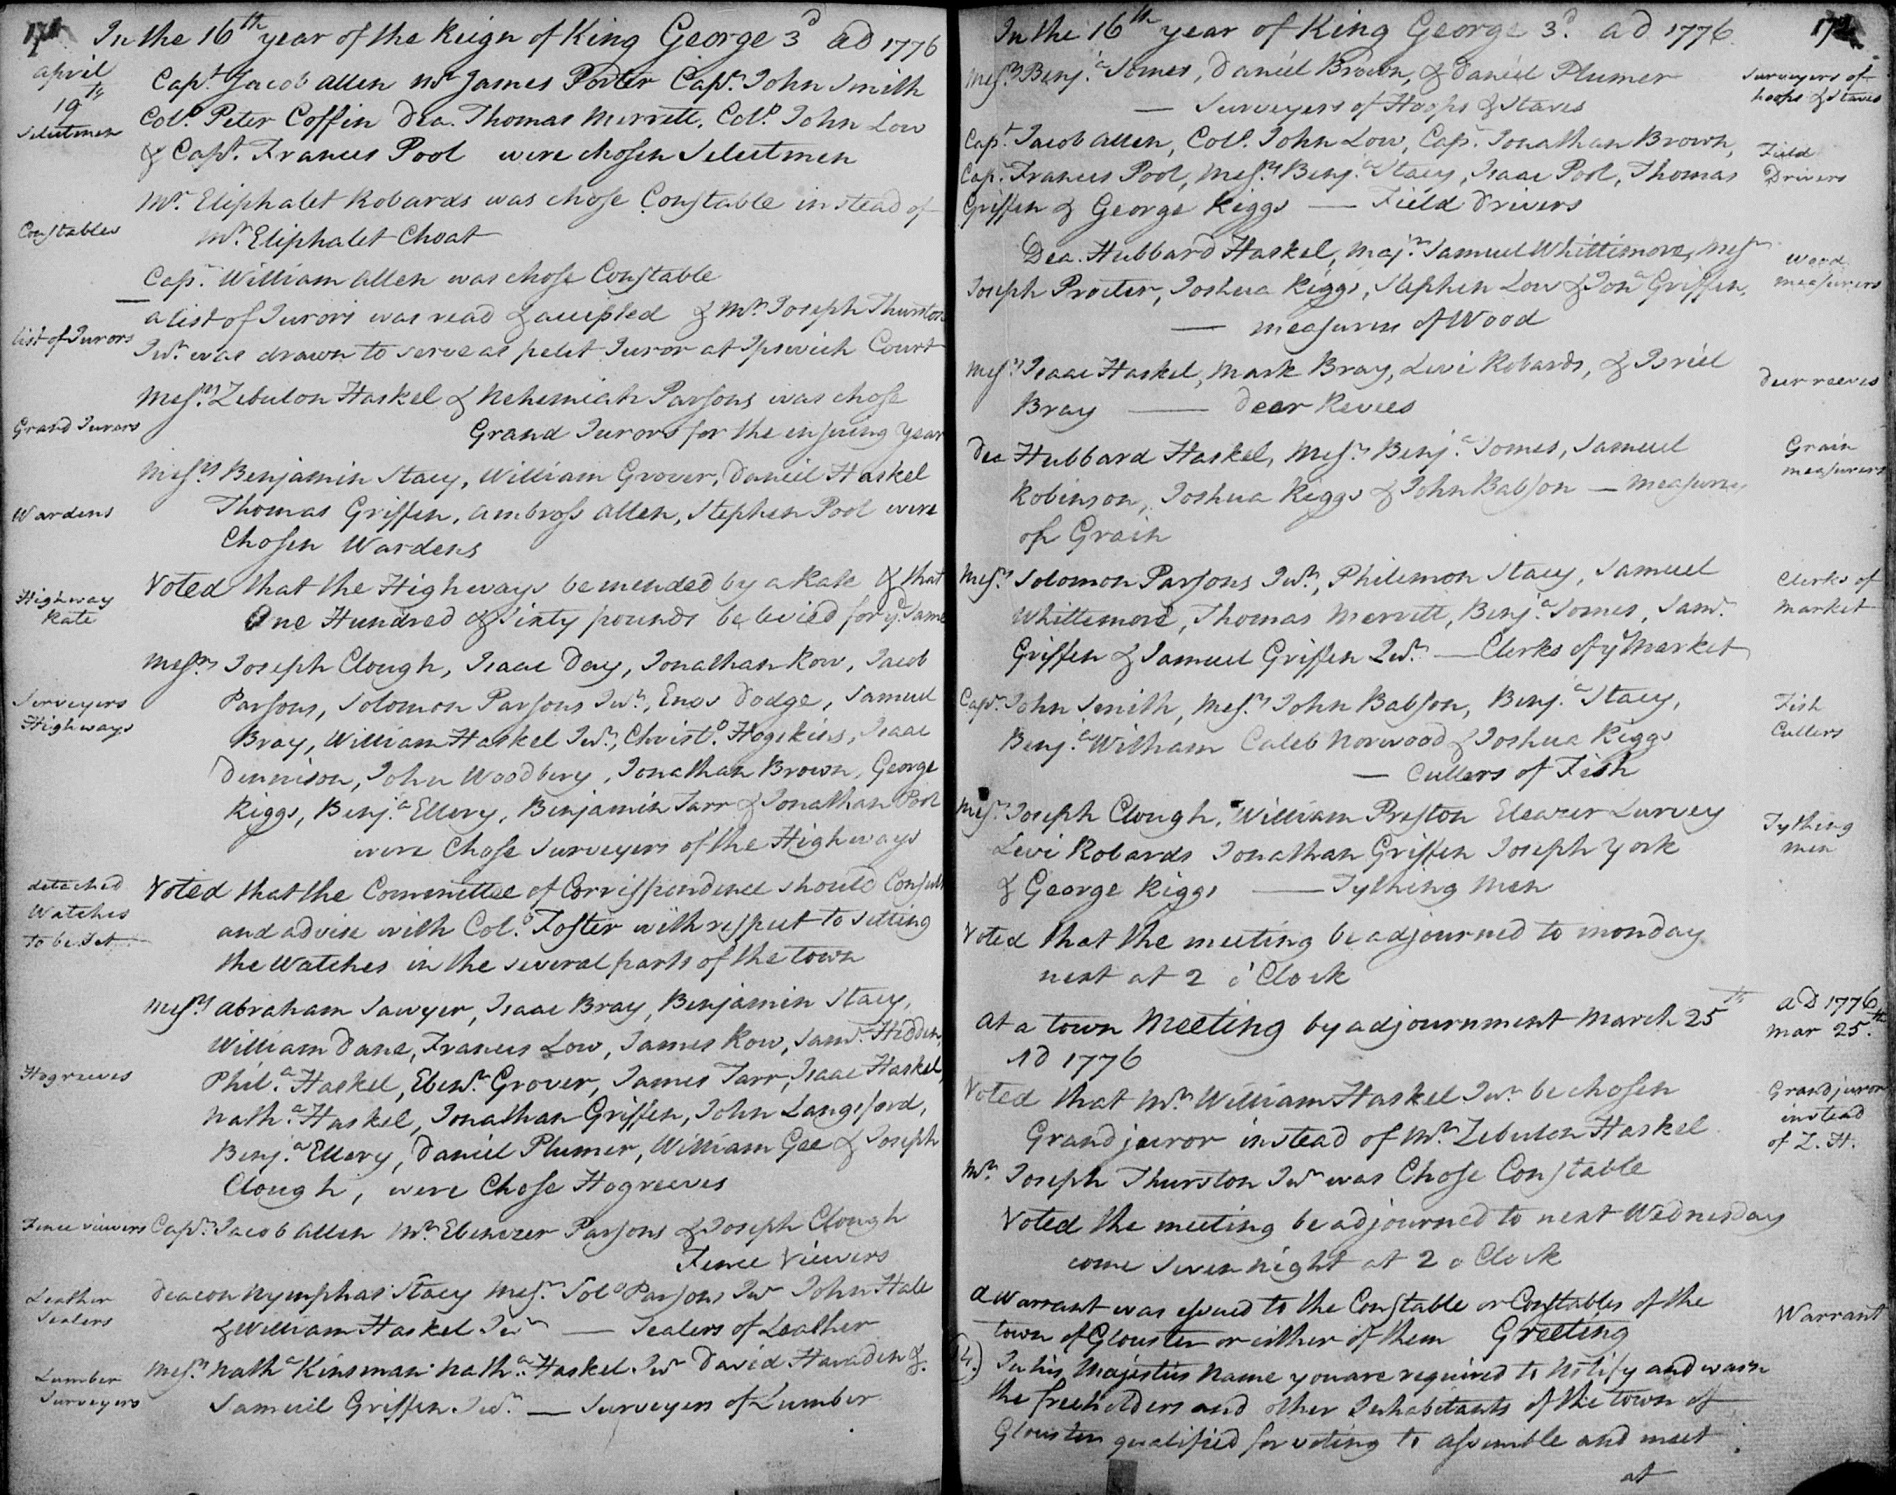 In the 16th year of the Reign of King George 3d AD 1776
April
19th
Selectmen
Capt. Jacob Allen Mr James Porter Capt. John Smith
Col.o Peter Coffin Dea. Thomas Merrett, Col.o John Low
& Capt. Frances Pool were chosen Selectmen
Constables
Mr. Eliphalet Robards was chose Constable in stead of
Mr. Eliphalet Choat
Capt. William Allen was chose Constable
list of Jurors
a list of Jurors was read & accepted & Mr. Joseph Thurston
Jun.r was drawn to serve as petit Juror at Ipswich Court
Grand Jurors
Mess.rs Zebulon Haskel & Nehemiah Parsons was chose
Grand Jurors for the ensuing Year
Wardens
Mess.rs Benjamin Stacy, William Grover, Daniel Haskel
Thomas Griffen, Ambross Allen, Stephen Pool were
Chosen Wardens
Highway
Rate
Voted that the Highways be mended by a Rate & that
One Hundred & Sixty pounds be levied for ye Same
Surveyers
Highways
Messrs Joseph Clough, Isaac Day, Jonathan Row, Jacob
Parsons, Solomon Parsons Jun.r, Enos Dodge, Samuel
Bray, William Haskel Jun.r, Christ.o Hogskins, Isaac
Dennison, John Woodbery, Jonathan Brown, George
Riggs, Benj.a Ellery, Benjamin Tarr & Jonathan Pool
were Chose Surveyers of the Highways
detached
Watches
to be Set
Voted that the Committee of Corrisspondence should Consult
and advise with Col.o Foster with respect to setting
the Watches in the several parts of the town
Hogreeves
Mess.rs Abraham Sawyer, Isaac Bray, Benjamin Stacy,
William Dane, Frances Low, James Row, Sam.l Hodden,
Phil.a Haskel, Eben.r Grover, James Tarr, Isaac Haskel,
Nath.a Haskel, Jonathan Griffen, John Langsford,
Benj.a Ellery, Daniel Plumer, William Gee & Joseph
Clough, were Chose Hogreeves
Fence viewers
Capt. Jacob Allen Mr. Ebenezer Parsons & Joseph Clough
Fence Viewers
Leather
Sealers
Deacon Nymphas Stacy Mess.rs Sol.o Parsons Jun.r John Hale
& William Haskel Jun.r — Sealers of Leather
Lumber
Surveyers
Mess.rs Nath.a Kinsman Nath.a Haskel Jun.r David Haraden &
Samuel Griffen Jun.r — Surveyers of Lumber
In the 16th year of King George 3d. AD 1776
172
Mess.rs Benj.a Somes, Daniel Brown, & Daniel Plumer
— Surveyers of Hoops & Staves
Surveyers of
hoops & Staves
Capt. Jacob Allen, Col.o John Low, Capt. Jonathan Brown,
Capt. Frances Pool, Mess.rs Benj.a Stacy, Isaac Pool, Thomas
Griffen & George Riggs — Field Drivers
Field
Drivers
Dea. Hubbard Haskel, Maj.r Samuel Whittimore, Mess.rs
Joseph Procter, Joshua Riggs, Stephen Low & Jon.a Griffen,
— Measurers of Wood
Wood
measurers
Mess.rs Isaac Haskel, Mark Bray, Levi Robards, & Isriel
Bray — Dear Reeves
Deer reeves
Dea Hubbard Haskel, Mess.rs Benj.a Somes, Samuel
Robinson, Joshua Riggs & John Babson — Measurers
of Grain
Grain
measurers
Mess.rs Solomon Parsons Jun.r, Philemon Stacy, Samuel
Whittemore, Thomas Merrett, Benj.a Somes, Sam.l
Griffen & Samuel Griffen Jun.r — Clerks of ye Market
Clerks of
Market
Capt. John Smith, Mess.rs John Babson, Benj.a Stacy,
Benj.a Witham Caleb Norwood & Joshua Riggs
— Cullers of Fish
Fish
Cullers
Mess.rs Joseph Clough, William Preston Eleazer Lurvey
Levi Robards Jonathan Griffen Joseph York
& George Riggs — Tything Men
Tything
men
Voted that the meeting be adjourned to monday
next at 2 o'Clock
At a town Meeting by adjournment March 25th
AD 1776
AD 1776
Mar 25th
Voted that Mr William Haskel Jun.r be chosen
Grand juror instead of Mr. Zebulon Haskel
Grand juror
instead
of Z. H.
Mr. Joseph Thurston Jun.r was Chose Constable
Voted the meeting be adjourned to next Wednesday
come seven night at 2 o Clock
A warrant was issued to the Constable or Constables of the
town of Glouster or either of them Greeting
Warrant
In his Majesties Name you are required to Notify and warn
the freeholders and other Inhabitants of the town of
Glouster qualified for voting to assemble and meet
at